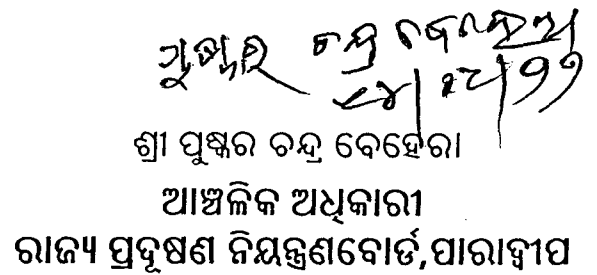 ପୁଷ୍କର ଚନ୍ଦ୍ର ବେହେରା
ଶ୍ରୀ ପୁଷ୍କର ଚନ୍ଦ୍ର ବେହେରା
ଆଞ୍ଚଳିକ ଅଧିକାରୀ
ରାଜ୍ୟ ପ୍ରଦୂଷଣ ନିୟନ୍ତ୍ରଣବୋର୍ଡ,ପାରାଦ୍ୱୀପ